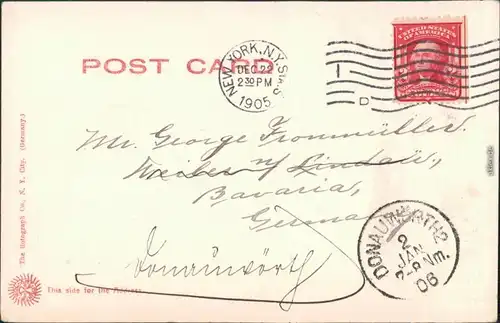 POST CARD
NEW YORK, N.Y. STA.
DEC 22
2 30 PM
1905
UNITED STATES
OF AMERICA
Mr. George Frommüller.
Weiler b/ Lindau,
Bavaria,
Germa
Donauwörth
DONAUWÖRTH 2
2
JAN
7-8 Nm.
06
The Rotograph Co., N. Y. City. (Germany.)
This side for the Address.